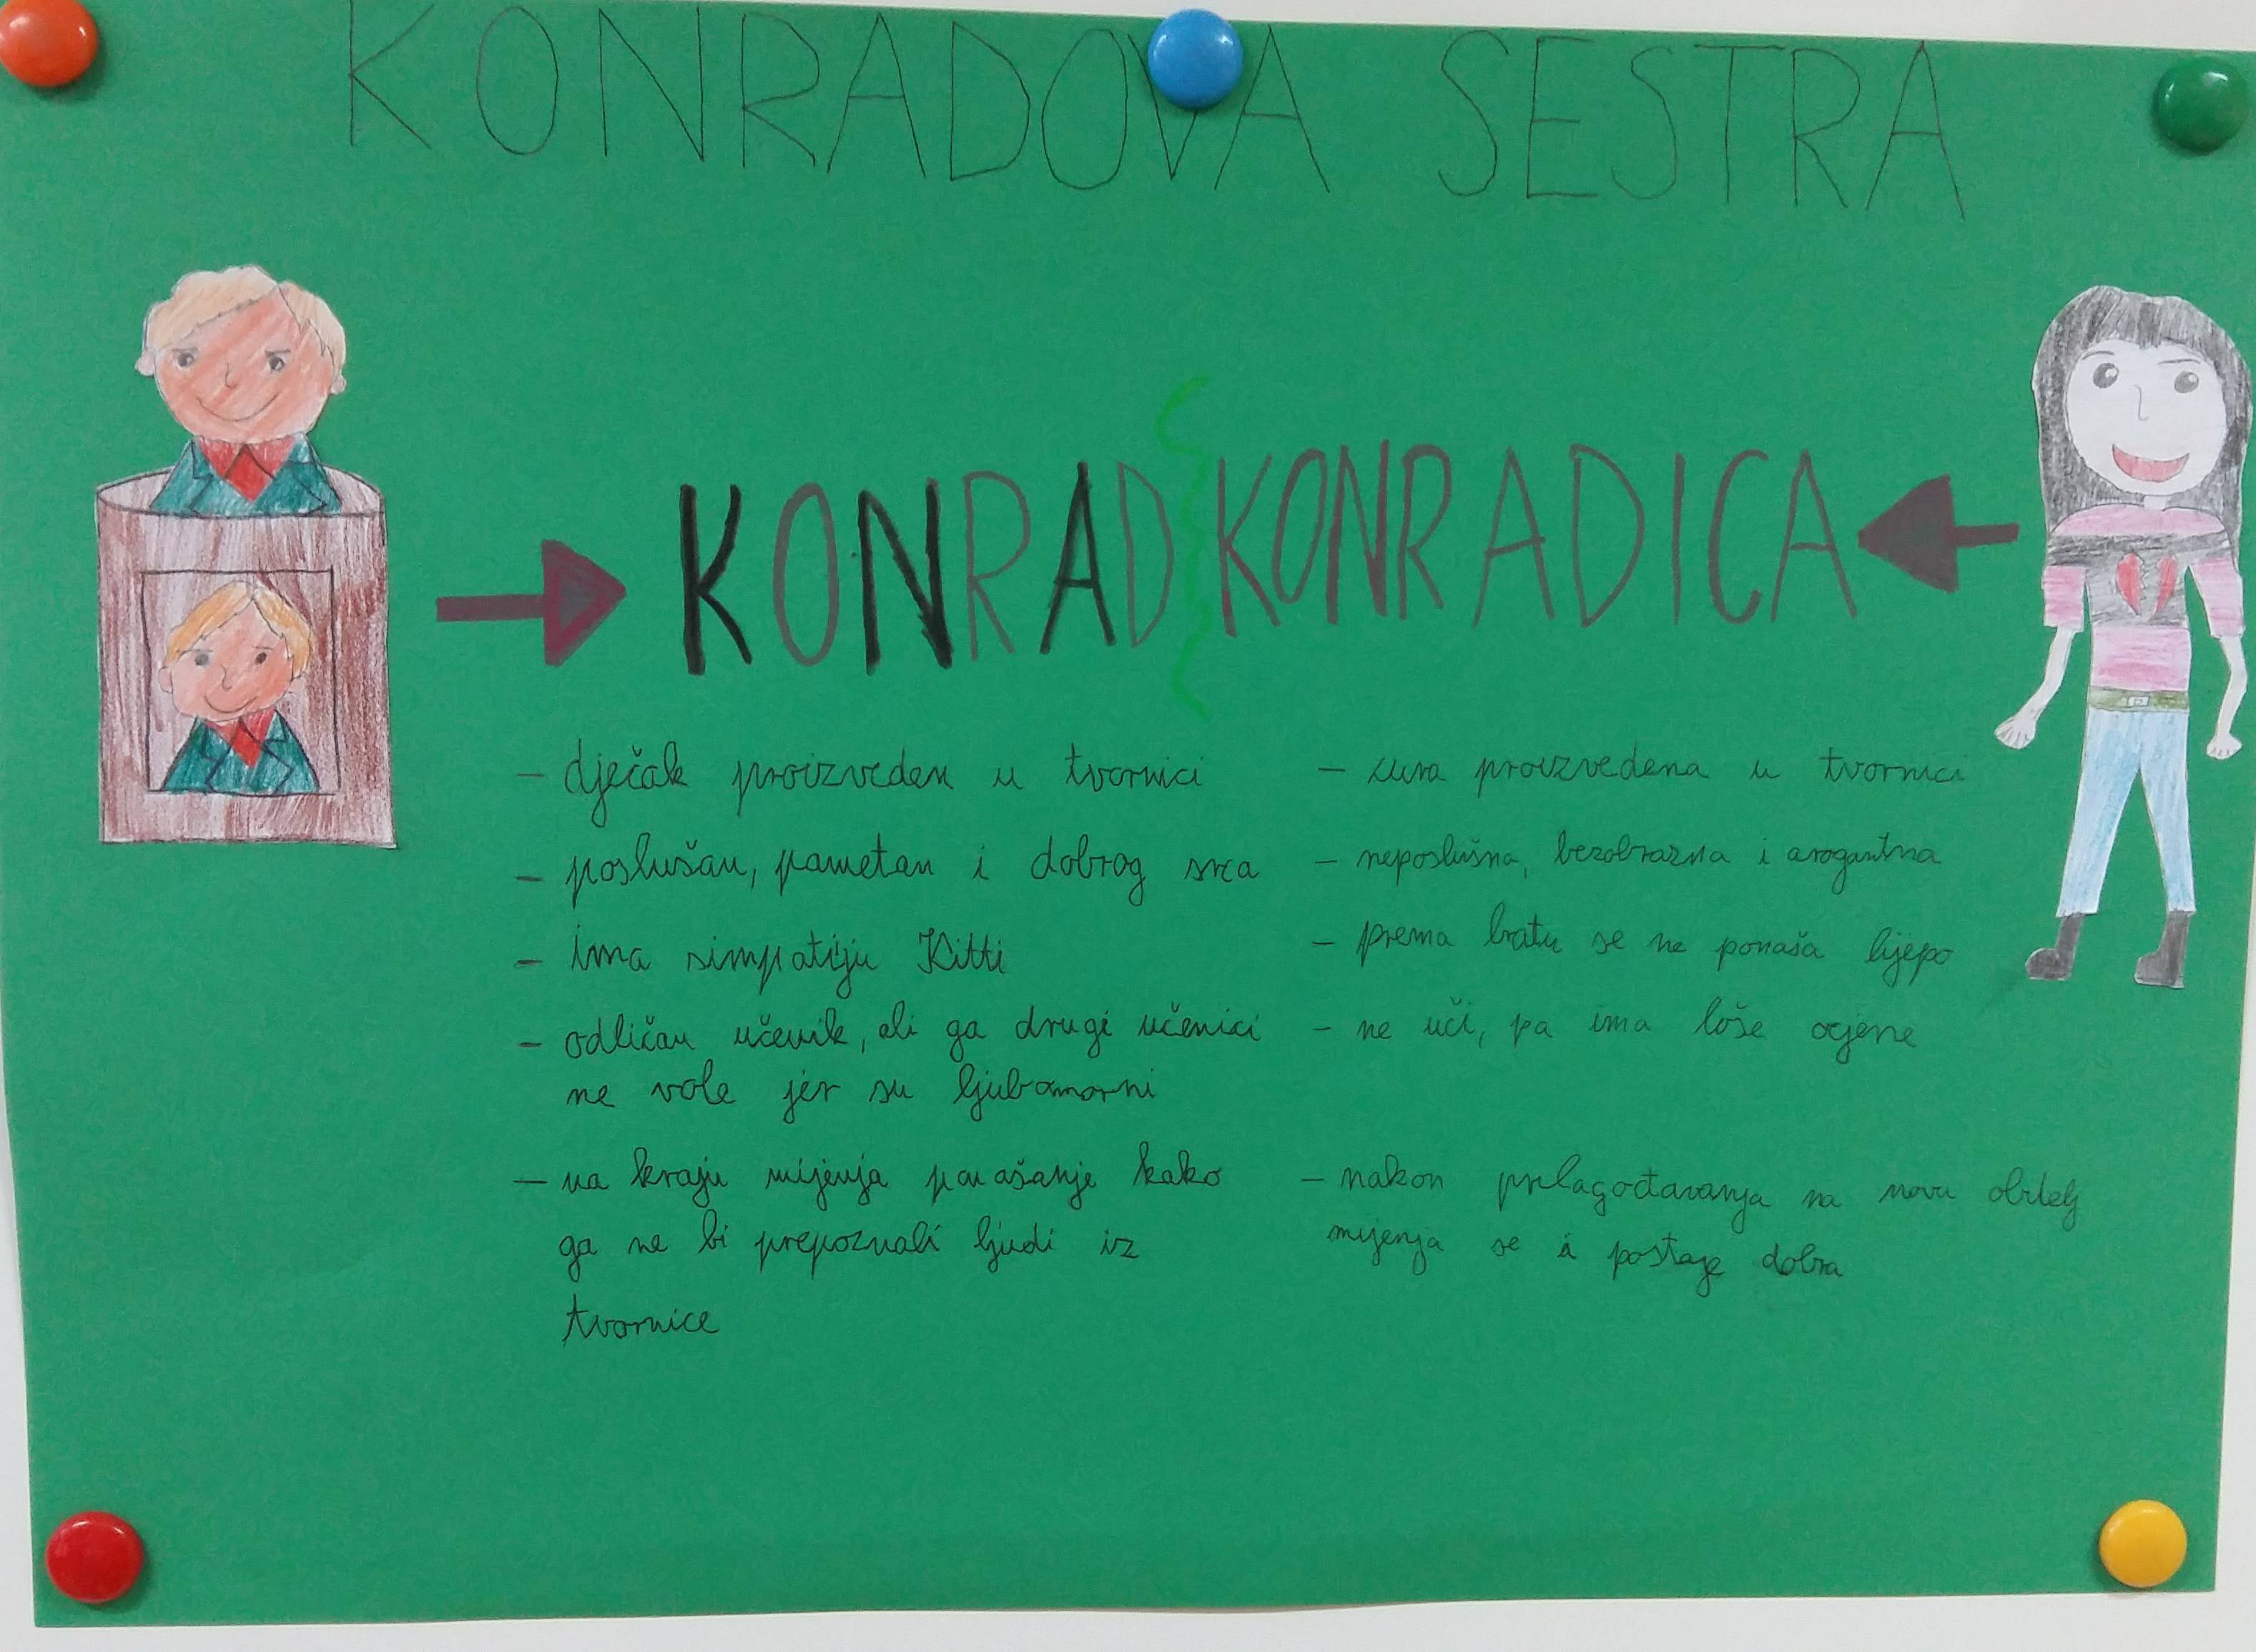 KONRADOVA SESTRA
KONRAD
- dječak proizveden u tvornici
- poslušan, pametan i dobrog srca
- ima simpatiju Kitti
- odličan učenik, ali ga drugi učenici
ne vole jer su ljubomorni
- na kraju mijenja ponašanje kako
ga ne bi prepoznali ljudi iz
tvornice
KONRADICA
- cura proizvedena u tvornici
- neposlušna, bezobrazna i arogantna
- prema bratu se ne ponaša lijepo
- ne uči, pa ima loše ocjene
- nakon prilagođavanja na novu obitelj
mijenja se i postaje dobra